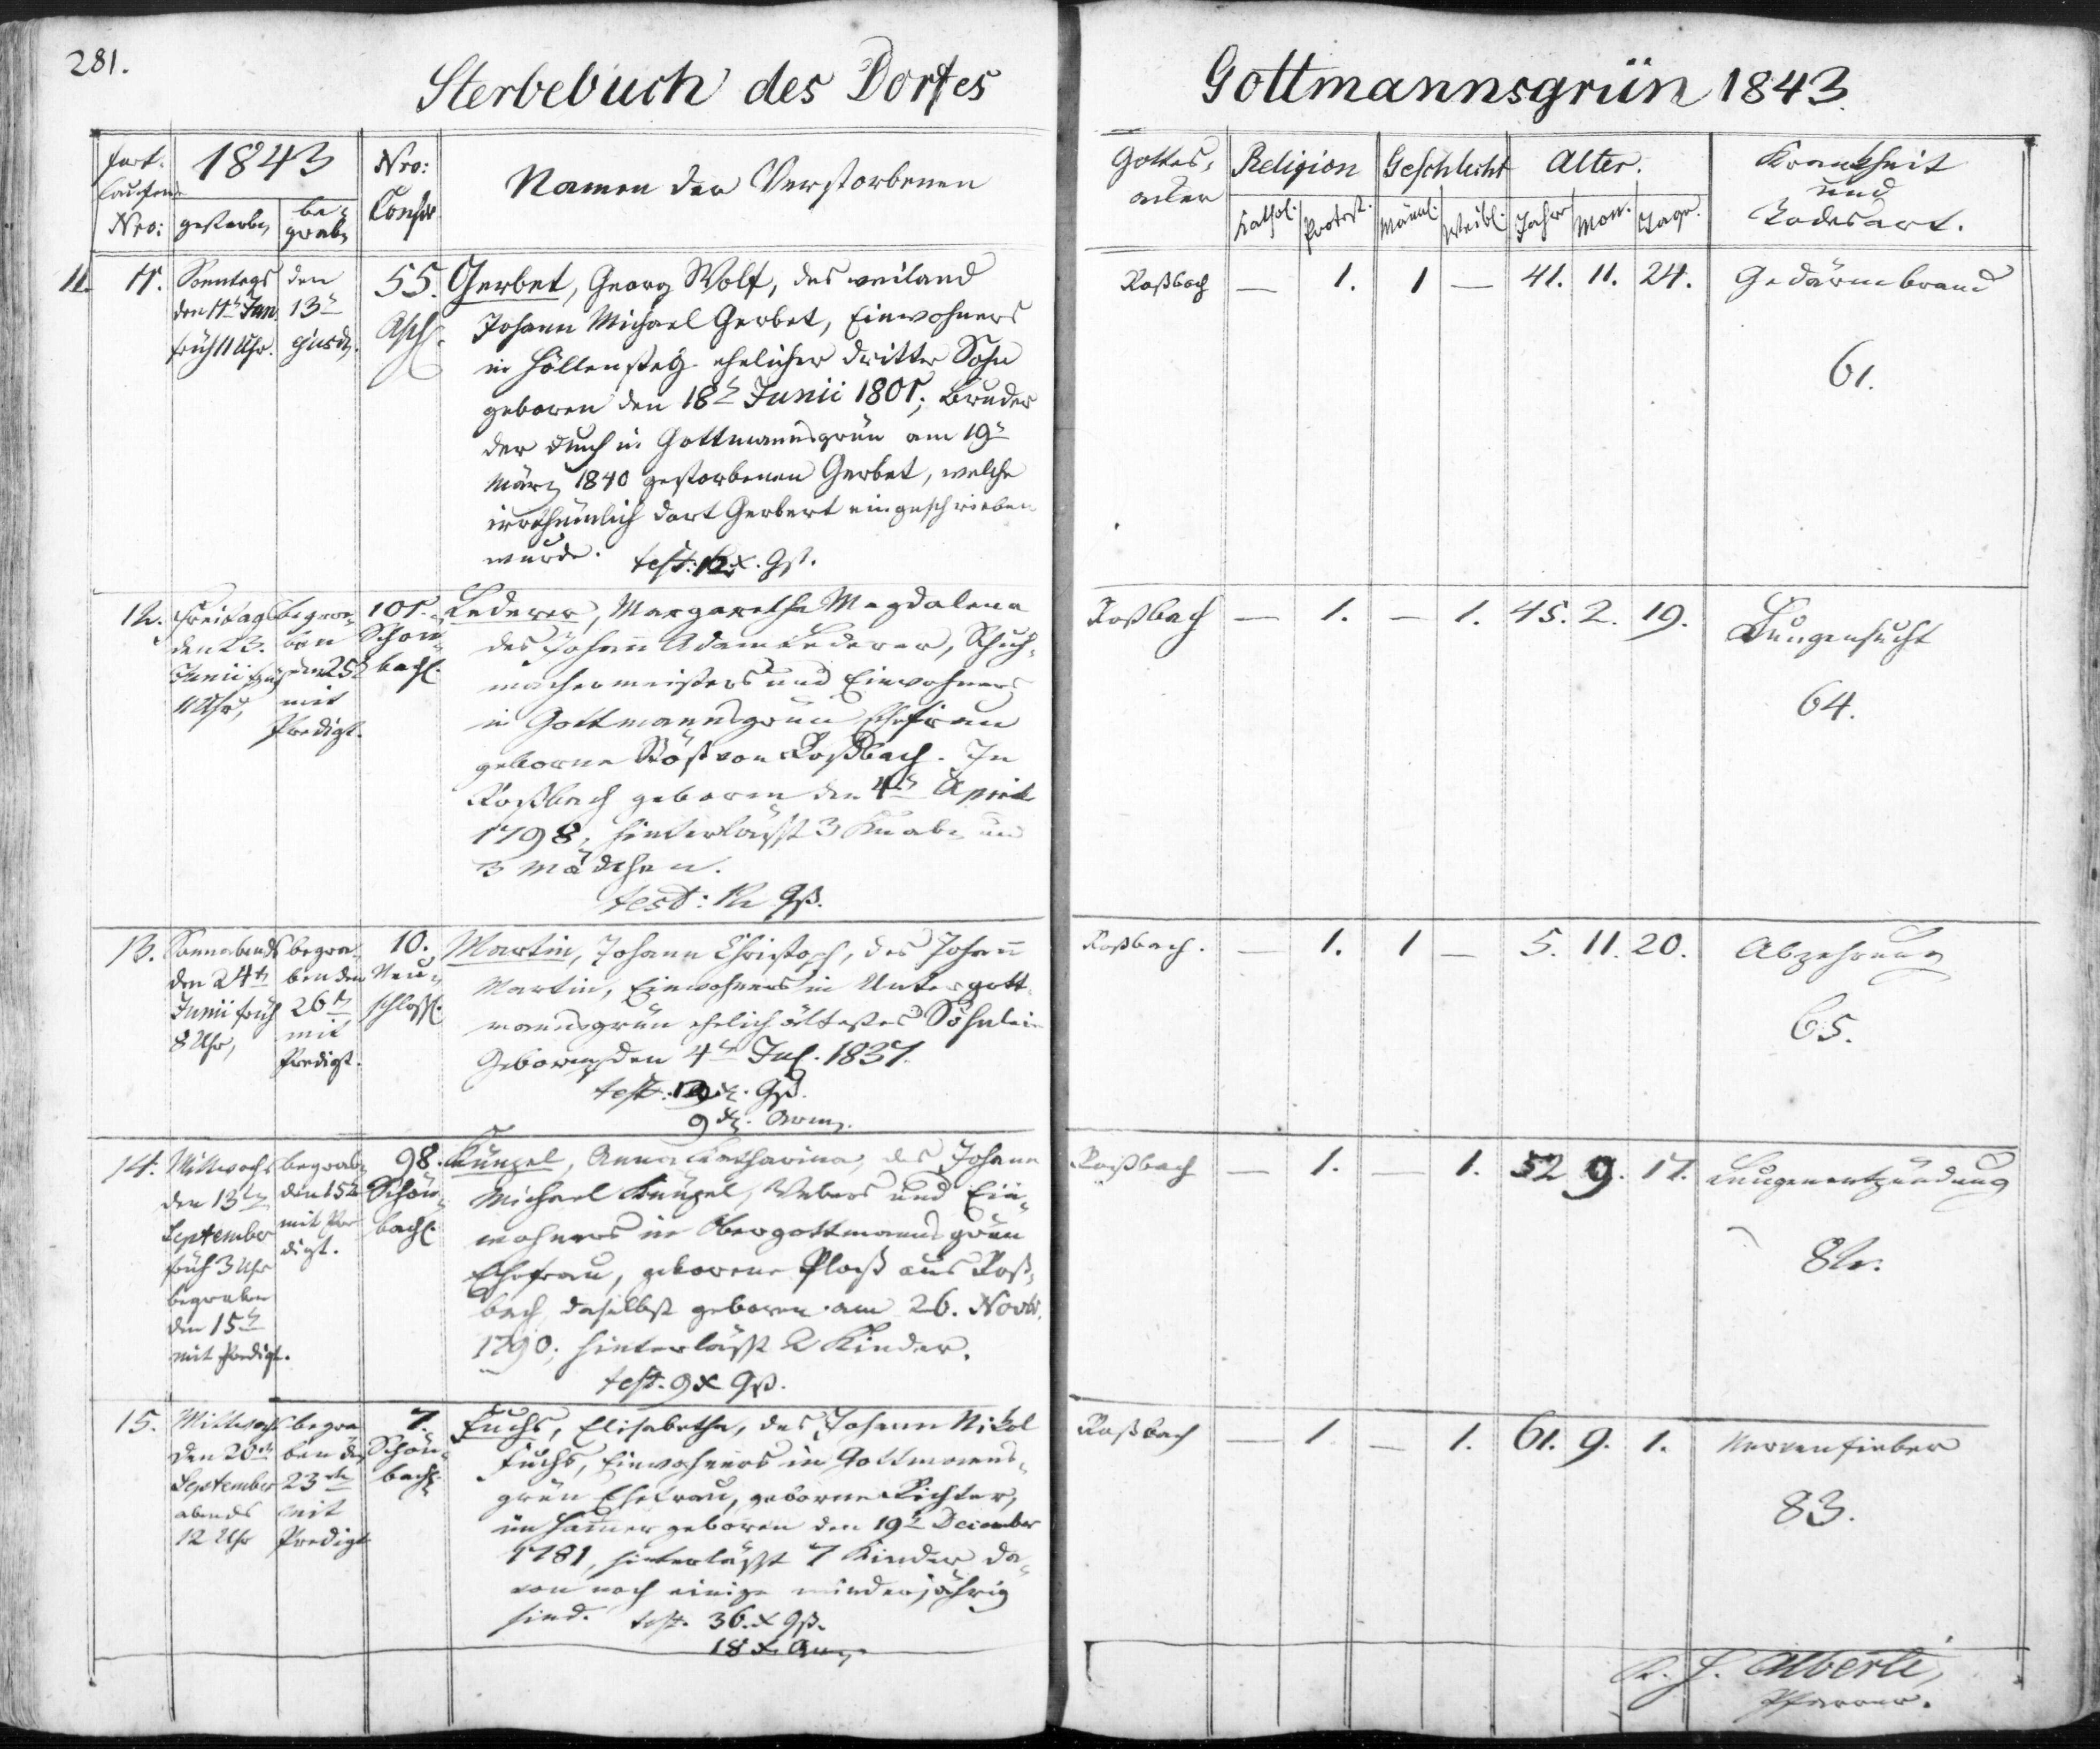 281.
Sterbebuch des Dorfes
Gottmannsgrün 1843.
fort-
laufende
Nro:
1843
gestorben
be-
graben
Nro:
Conscr.
Namen der Verstorbenen
Gottes-
acker
Religion
Kathol.
Protest.
Geschlecht
Männl.
Weibl.
Alter.
Jahr
Mon.
Tage.
Krankheit
und
Todesart.
11.
11.
Sonntags
den 11n Jun.
früh 11 Uhr.
den
13n
ejusd.
55.
Asch.
Gerbet, Georg Wolf, des weiland
Johann Michael Gerbet, Einwohners
in Höllensteg ehelicher dritter Sohn
geboren den 18n Junii 1801; Bruder
der auch in Gottmannsgrün am 19n
März 1840 gestorbenen Gerbet, welche
irrthümlich dort Gerbert eingeschrieben
wurde. test. 12 x. Gst.
Roßbach — 1. 1 — 41. 11. 24. Gedärmbrand
61.
12.
Freitags
den 23.
Junii früh
11 Uhr,
begra-
ben
den 25n
mit
Predigt.
101.
Schön-
bach.
Lederer, Margaretha Magdalena
des Johann Adam Lederer, Schuh-
machermeisters und Einwohners
in Gottmannsgrün Ehefrau
geborne von Roßbach. In
Roßbach geboren den 4n April
1798; hinterläßt 3 Knaben und
3 Mädchen.
test: 12 Gst.
Roßbach — 1. — 1. 45. 2. 19. Lungensucht
64.
13.
Sonnabends
den 24n
Junii früh
8 Uhr,
begra-
ben den
26n
mit
Predigt.
10.
Neu-
schloß.
Martin, Johann Christoph, des Johann
Martin, Einwohners in Untergott-
mannsgrün ehelich ältestes Söhnlein
Geboren den 4n Jul. 1837.
test. Gst.
9 x. Arm.
Roßbach. — 1. 1 — 5. 11. 20. Abzehrung
65.
14.
Mittwochs
den 13n
September
früh 3 Uhr
begraben
den 15n
mit Predigt.
begraben
den 15n
mit Pre-
digt.
98.
Schön-
bach.
Künzel, Anna Katharina, des Johann
Michael Künzel, Webers und Ein-
wohners in Obergottmannsgrün
Ehefrau, geborene Ploß aus Roß-
bach, daselbst geboren am 26. Novbr.
1790; hinterläßt 2 Kinder.
test. 9 x Gst.
Roßbach — 1. — 1. 52 9. 17. Lungenentzündung
82.
15.
Mittwochs
den 20n
September
abends
12 Uhr
begra-
ben den
23n
mit
Predigt
7.
Schön-
bach.
Fuchs, Elisabetha, des Johann Nikol
Fuchs, Einwohners in Gottmanns-
grün Ehefrau, geborne Richter,
im Hammer geboren den 19n December
1781, hinterläßt 7 Kinder da-
von noch einige minderjährig
sind. test. 36. x Gst.
18 x Arm.
Roßbach — 1. — 1. 61. 9. 1. Nervenfieber
83.
Alberti,
Pfarrer.